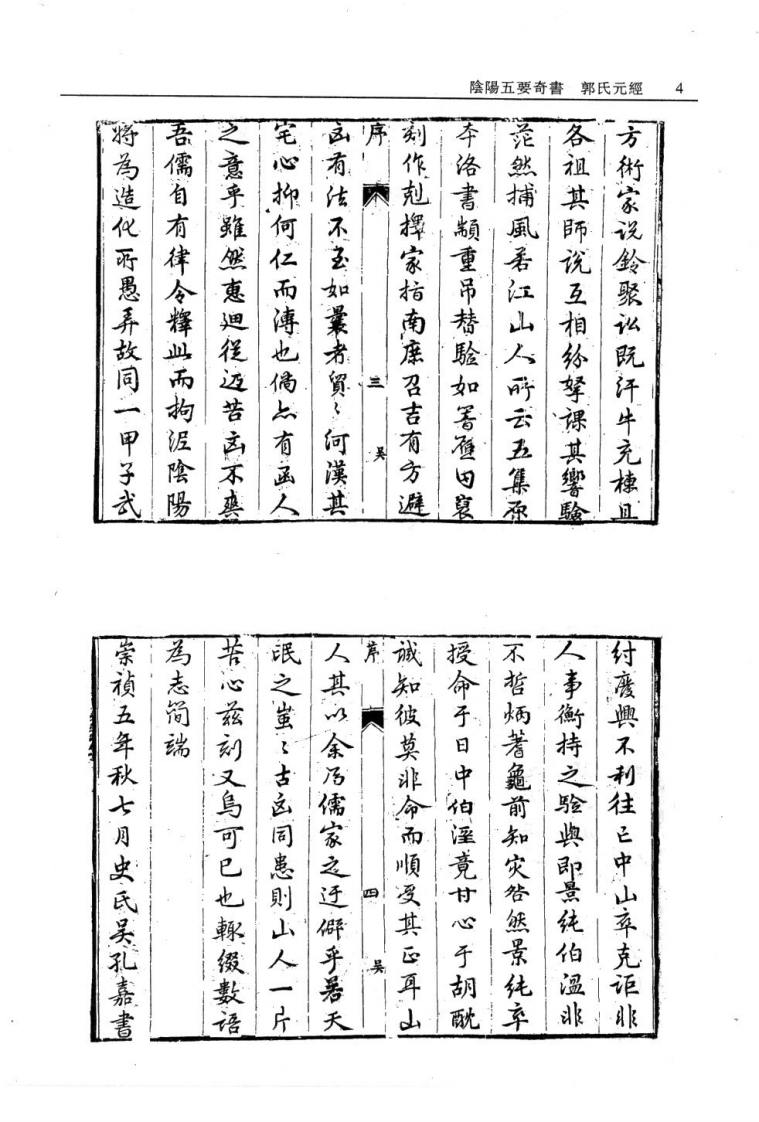 陰陽五要奇書　郭氏元經　4
方術家說鈴聚訟既汗牛充棟且
各祖其師說互相紛拏課其響驗
茫然捕風若江山人所云五集原
本洛書顓重吊替驗如箸應因裒
刻作剋擇家指南庶召吉有方避
序　三　吳
凶有法不至如曩者貿〻河漢其
宅心抑何仁而溥也倘亦有函人
之意乎雖然惠迪從逆吉凶不爽
吾儒自有律令釋此而拘泥陰陽
將為造化所愚弄故同一甲子武
紂廢興不利往亡中山卒克詎非
人事衡持之驗與即景純伯溫非
不哲炳蓍龜前知灾咎然景純卒
授命于日中伯溫竟甘心于胡酖
誠知彼莫非命而順受其正耳山
序　四　吳
人其以余為儒家之迂僻乎若夫
氓之蚩〻吉凶同患則山人一片
苦心茲刻又烏可已也輒綴數語
為志簡端
崇禎五年秋七月史氏吳孔嘉書